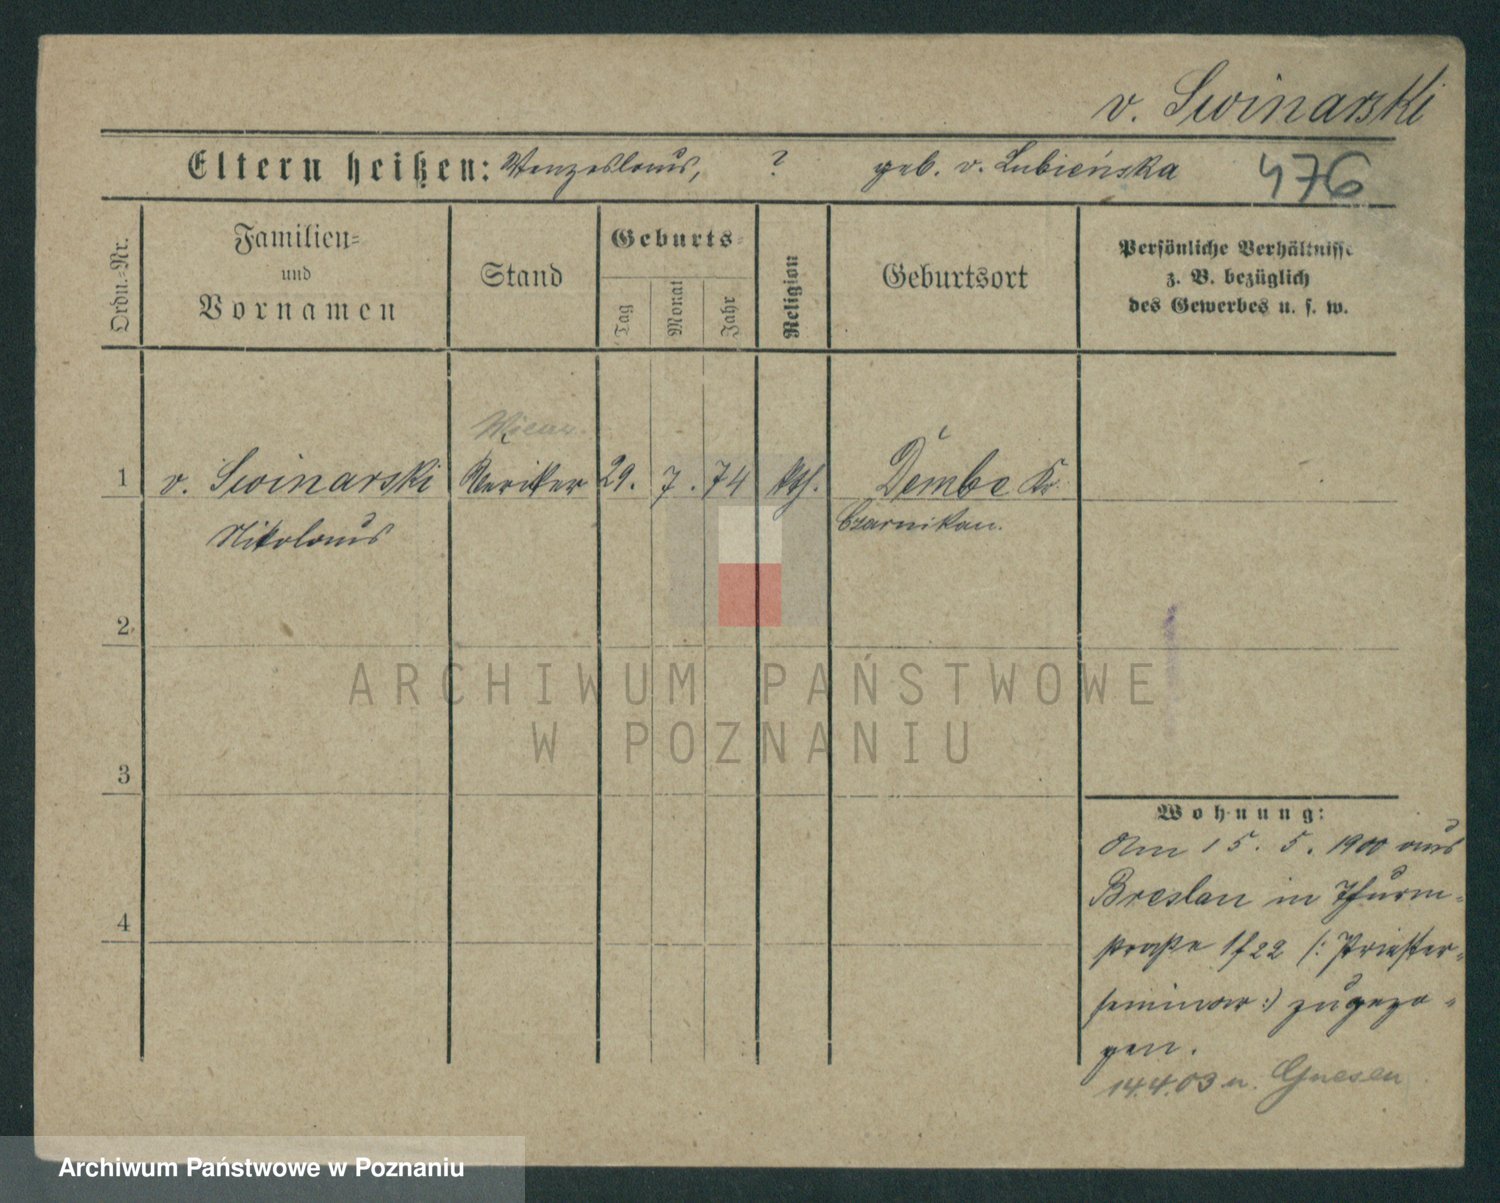 v. Swinarski
Eltern heißen: Wenzeslaus, ? geb. v. Lubieńska
476
Ordn.-Nr.
Familien-
und
Vornamen
Stand
Geburts-
Tag
Monat
Jahr
Religion
Geburtsort
Persönliche Verhältnisse
z. B. bezüglich
des Gewerbes u. s. w.
1 v. Swinarski Kleriker 29. 7. 74 kth. Dembe Kr.
Nikolaus Czarnikau.
2
3
4
Wohnung:
Am 15. 5. 1900 aus
Breslau in Thurm-
straße 1/22 (: Priester-
seminar :) zugezo-
gen.
14.4.03 n. Gnesen
ARCHIWUM PAŃSTWOWE
W POZNANIU
Archiwum Państwowe w Poznaniu